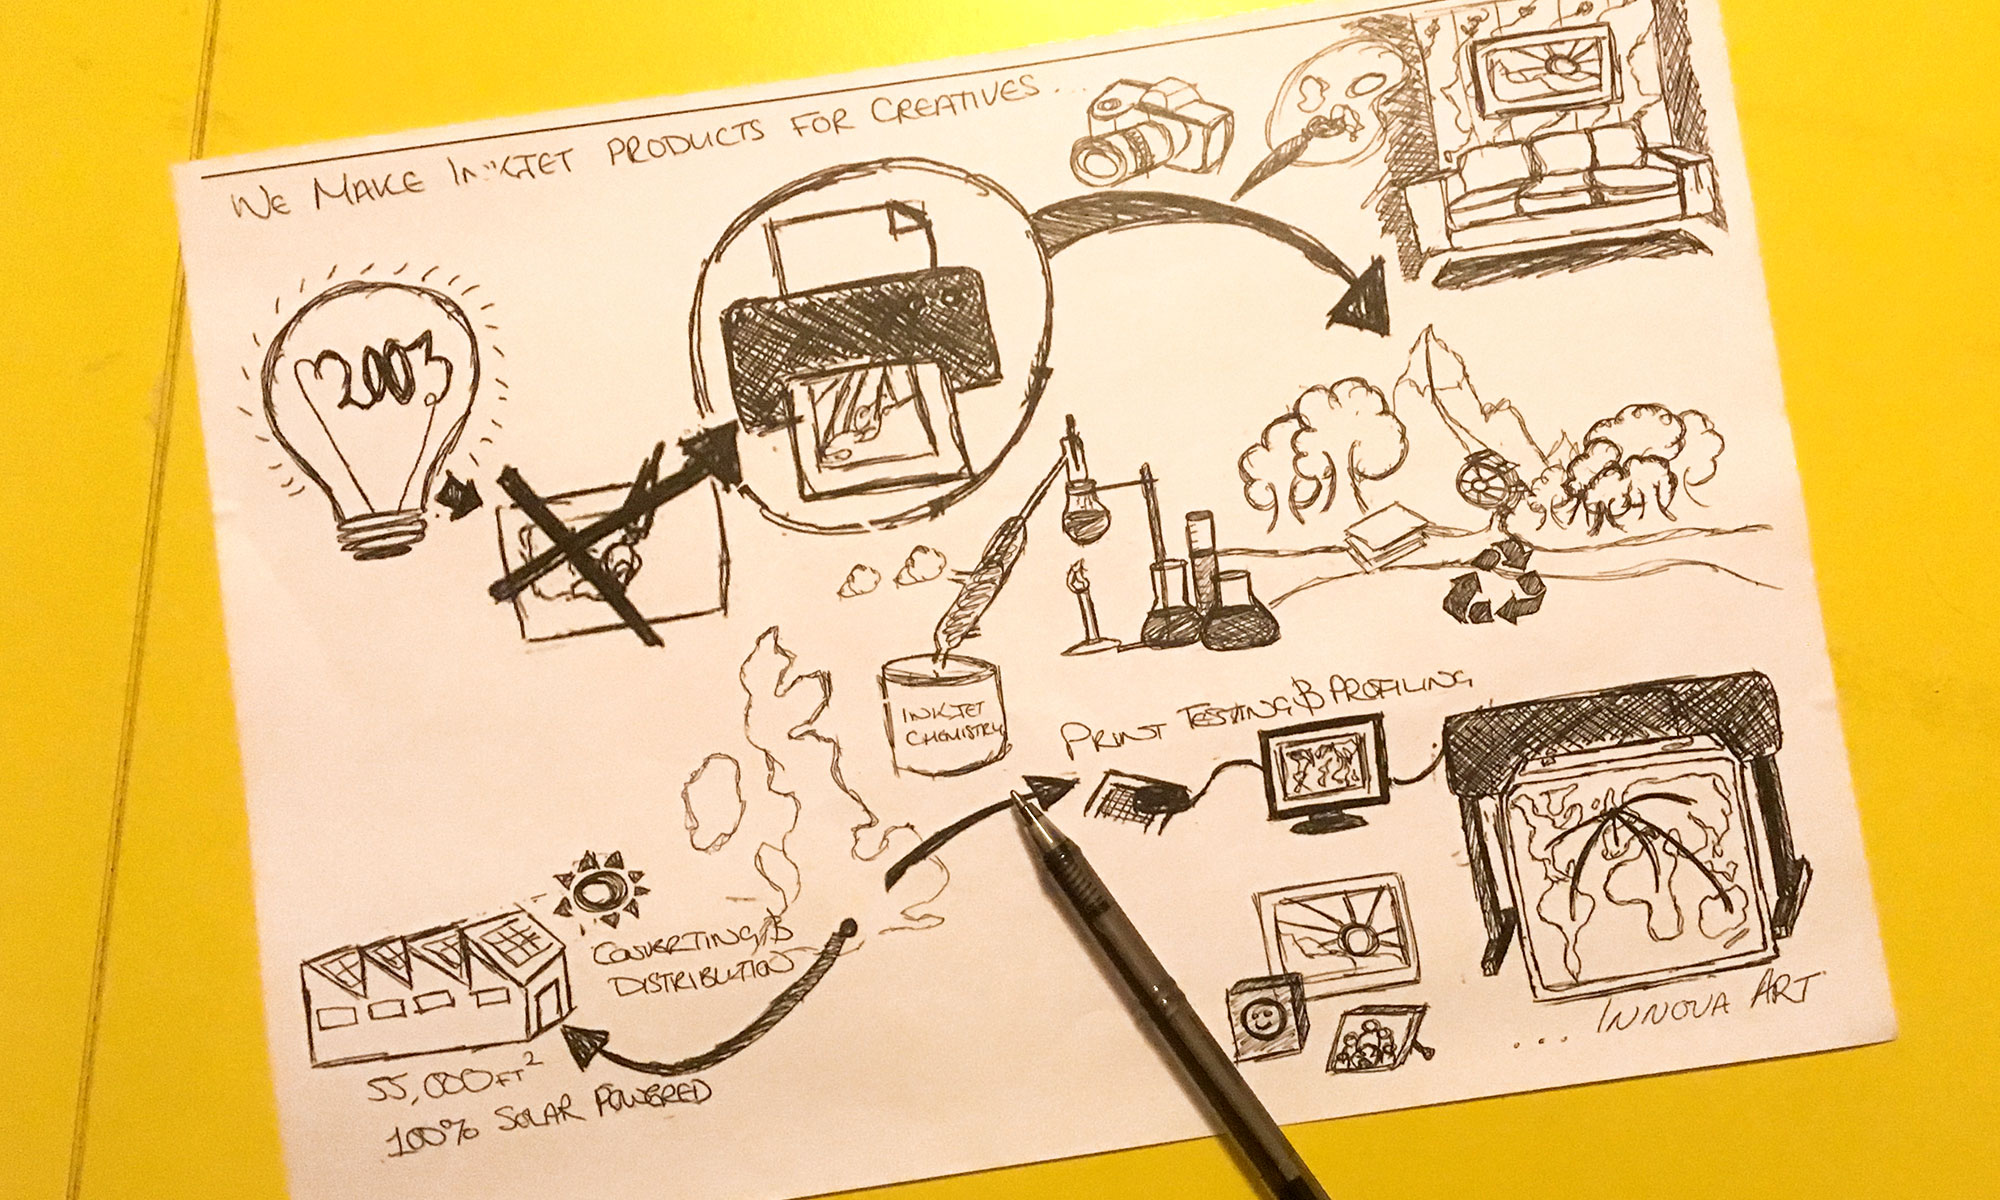 WE MAKE INKJET PRODUCTS FOR CREATIVES...
2003
INKJET
CHEMISTRY
PRINT TESTING & PROFILING
CONVERTING &
DISTRIBUTION
55,000 FT²
100% SOLAR POWERED
... INNOVA ART